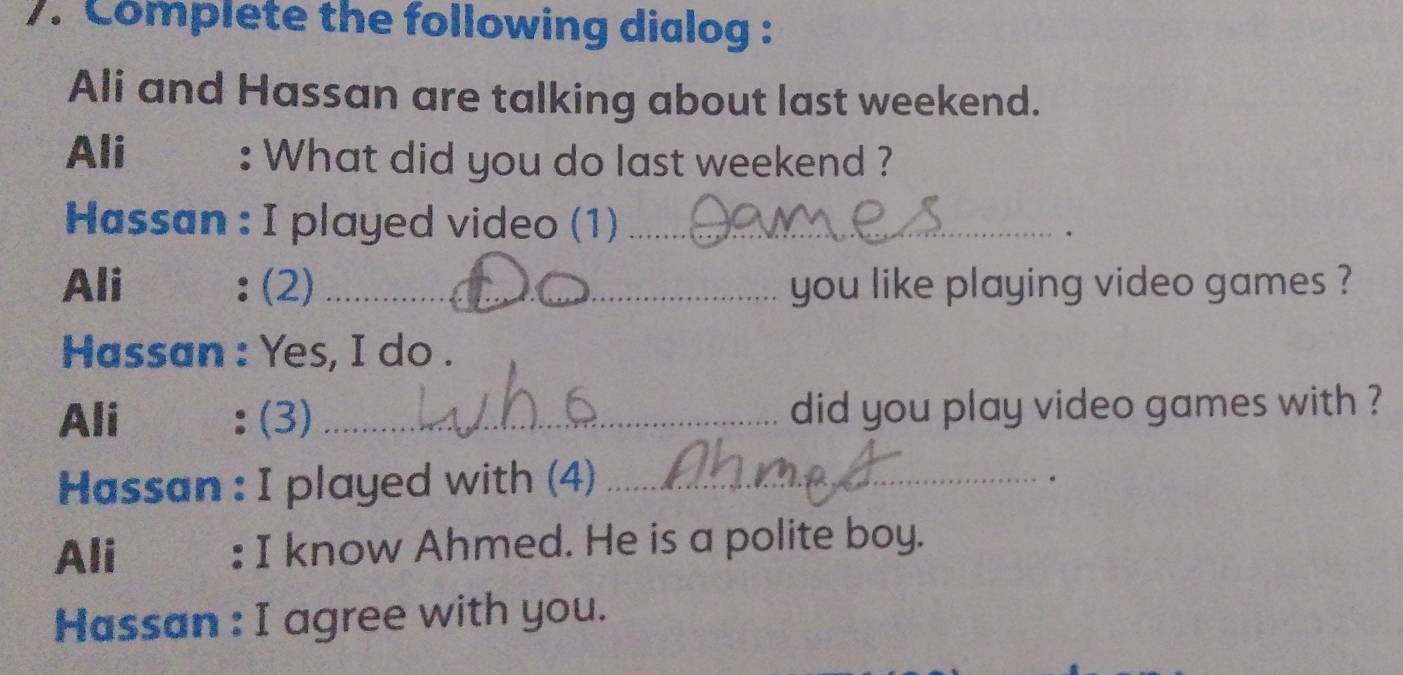 7. Complete the following dialog :
Ali and Hassan are talking about last weekend.
Ali : What did you do last weekend ?
Hassan : I played video (1) games .
Ali : (2) Do you like playing video games ?
Hassan : Yes, I do .
Ali : (3) who did you play video games with ?
Hassan : I played with (4) Ahmed .
Ali : I know Ahmed. He is a polite boy.
Hassan : I agree with you.